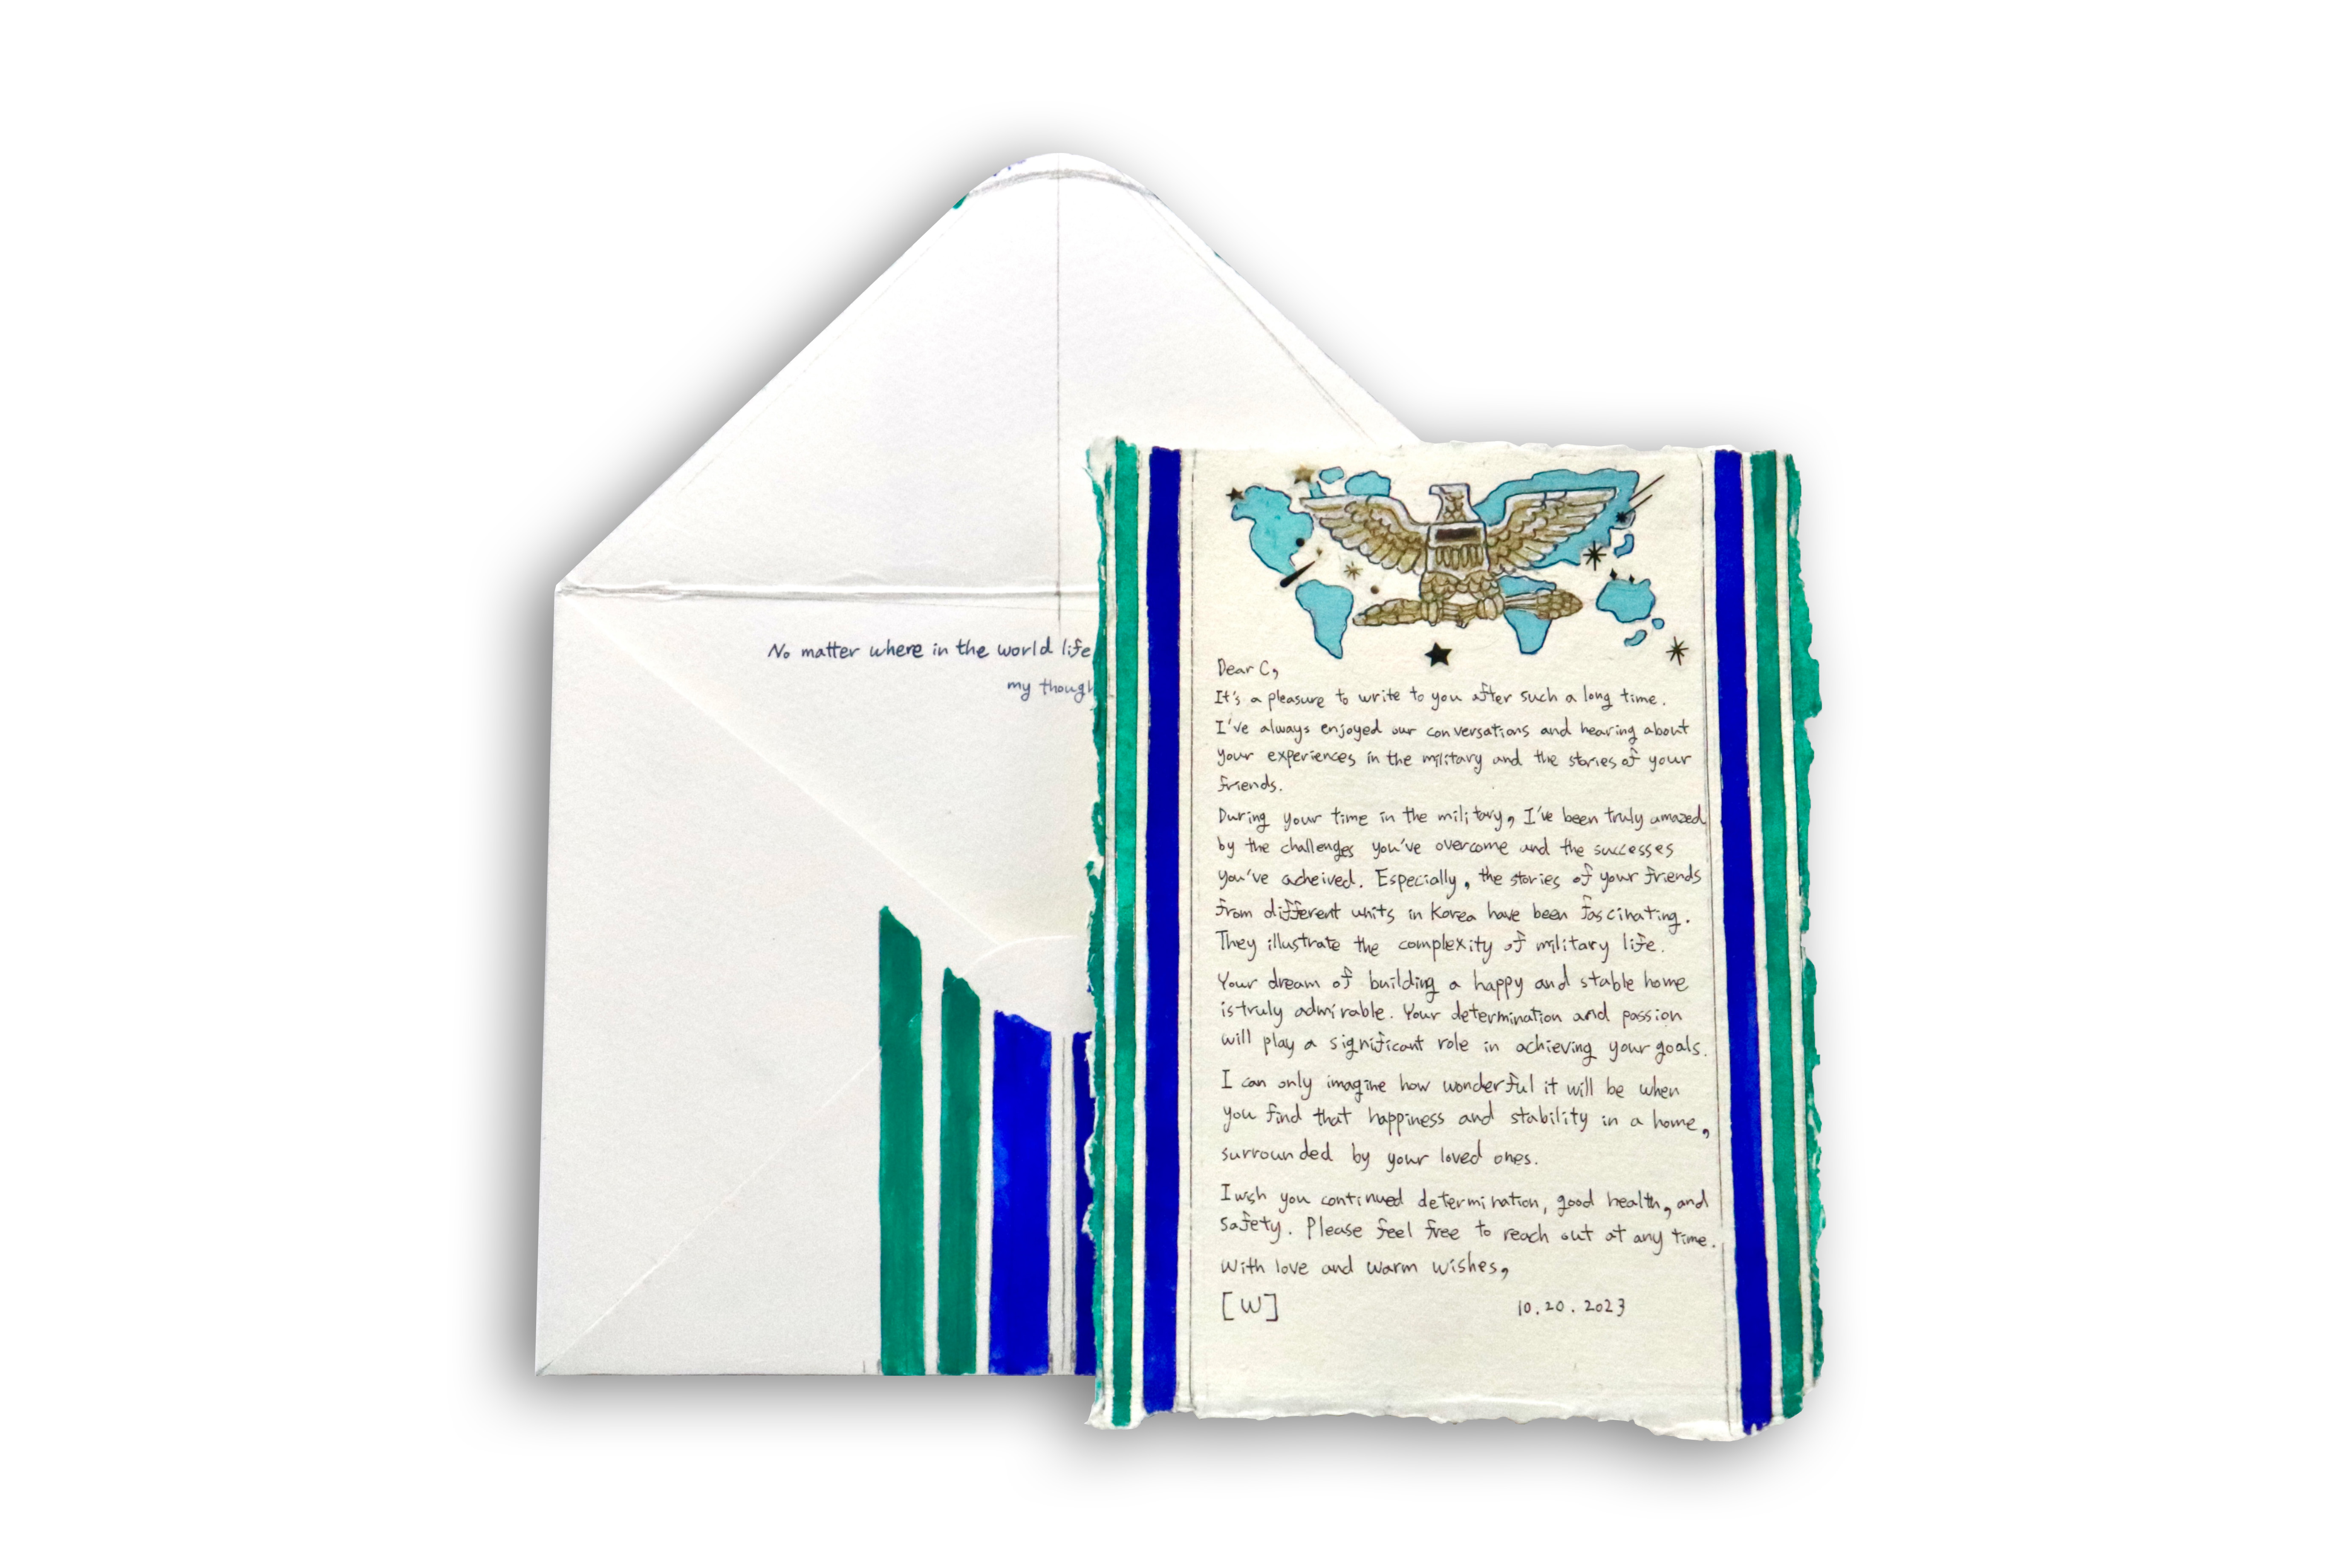 No matter where in the world life
my though
Dear C,
It's a pleasure to write to you after such a long time.
I've always enjoyed our conversations and hearing about
your experiences in the military and the stories of your
friends.
During your time in the military, I've been truly amazed
by the challenges you've overcome and the successes
you've acheived. Especially, the stories of your friends
from different units in Korea have been fascinating.
They illustrate the complexity of military life.
Your dream of building a happy and stable home
is truly admirable. Your determination and passion
will play a significant role in achieving your goals.
I can only imagine how wonderful it will be when
you find that happiness and stability in a home,
surrounded by your loved ones.
I wish you continued determination, good health, and
safety. Please feel free to reach out at any time.
With love and warm wishes,
[W] 10.20.2023